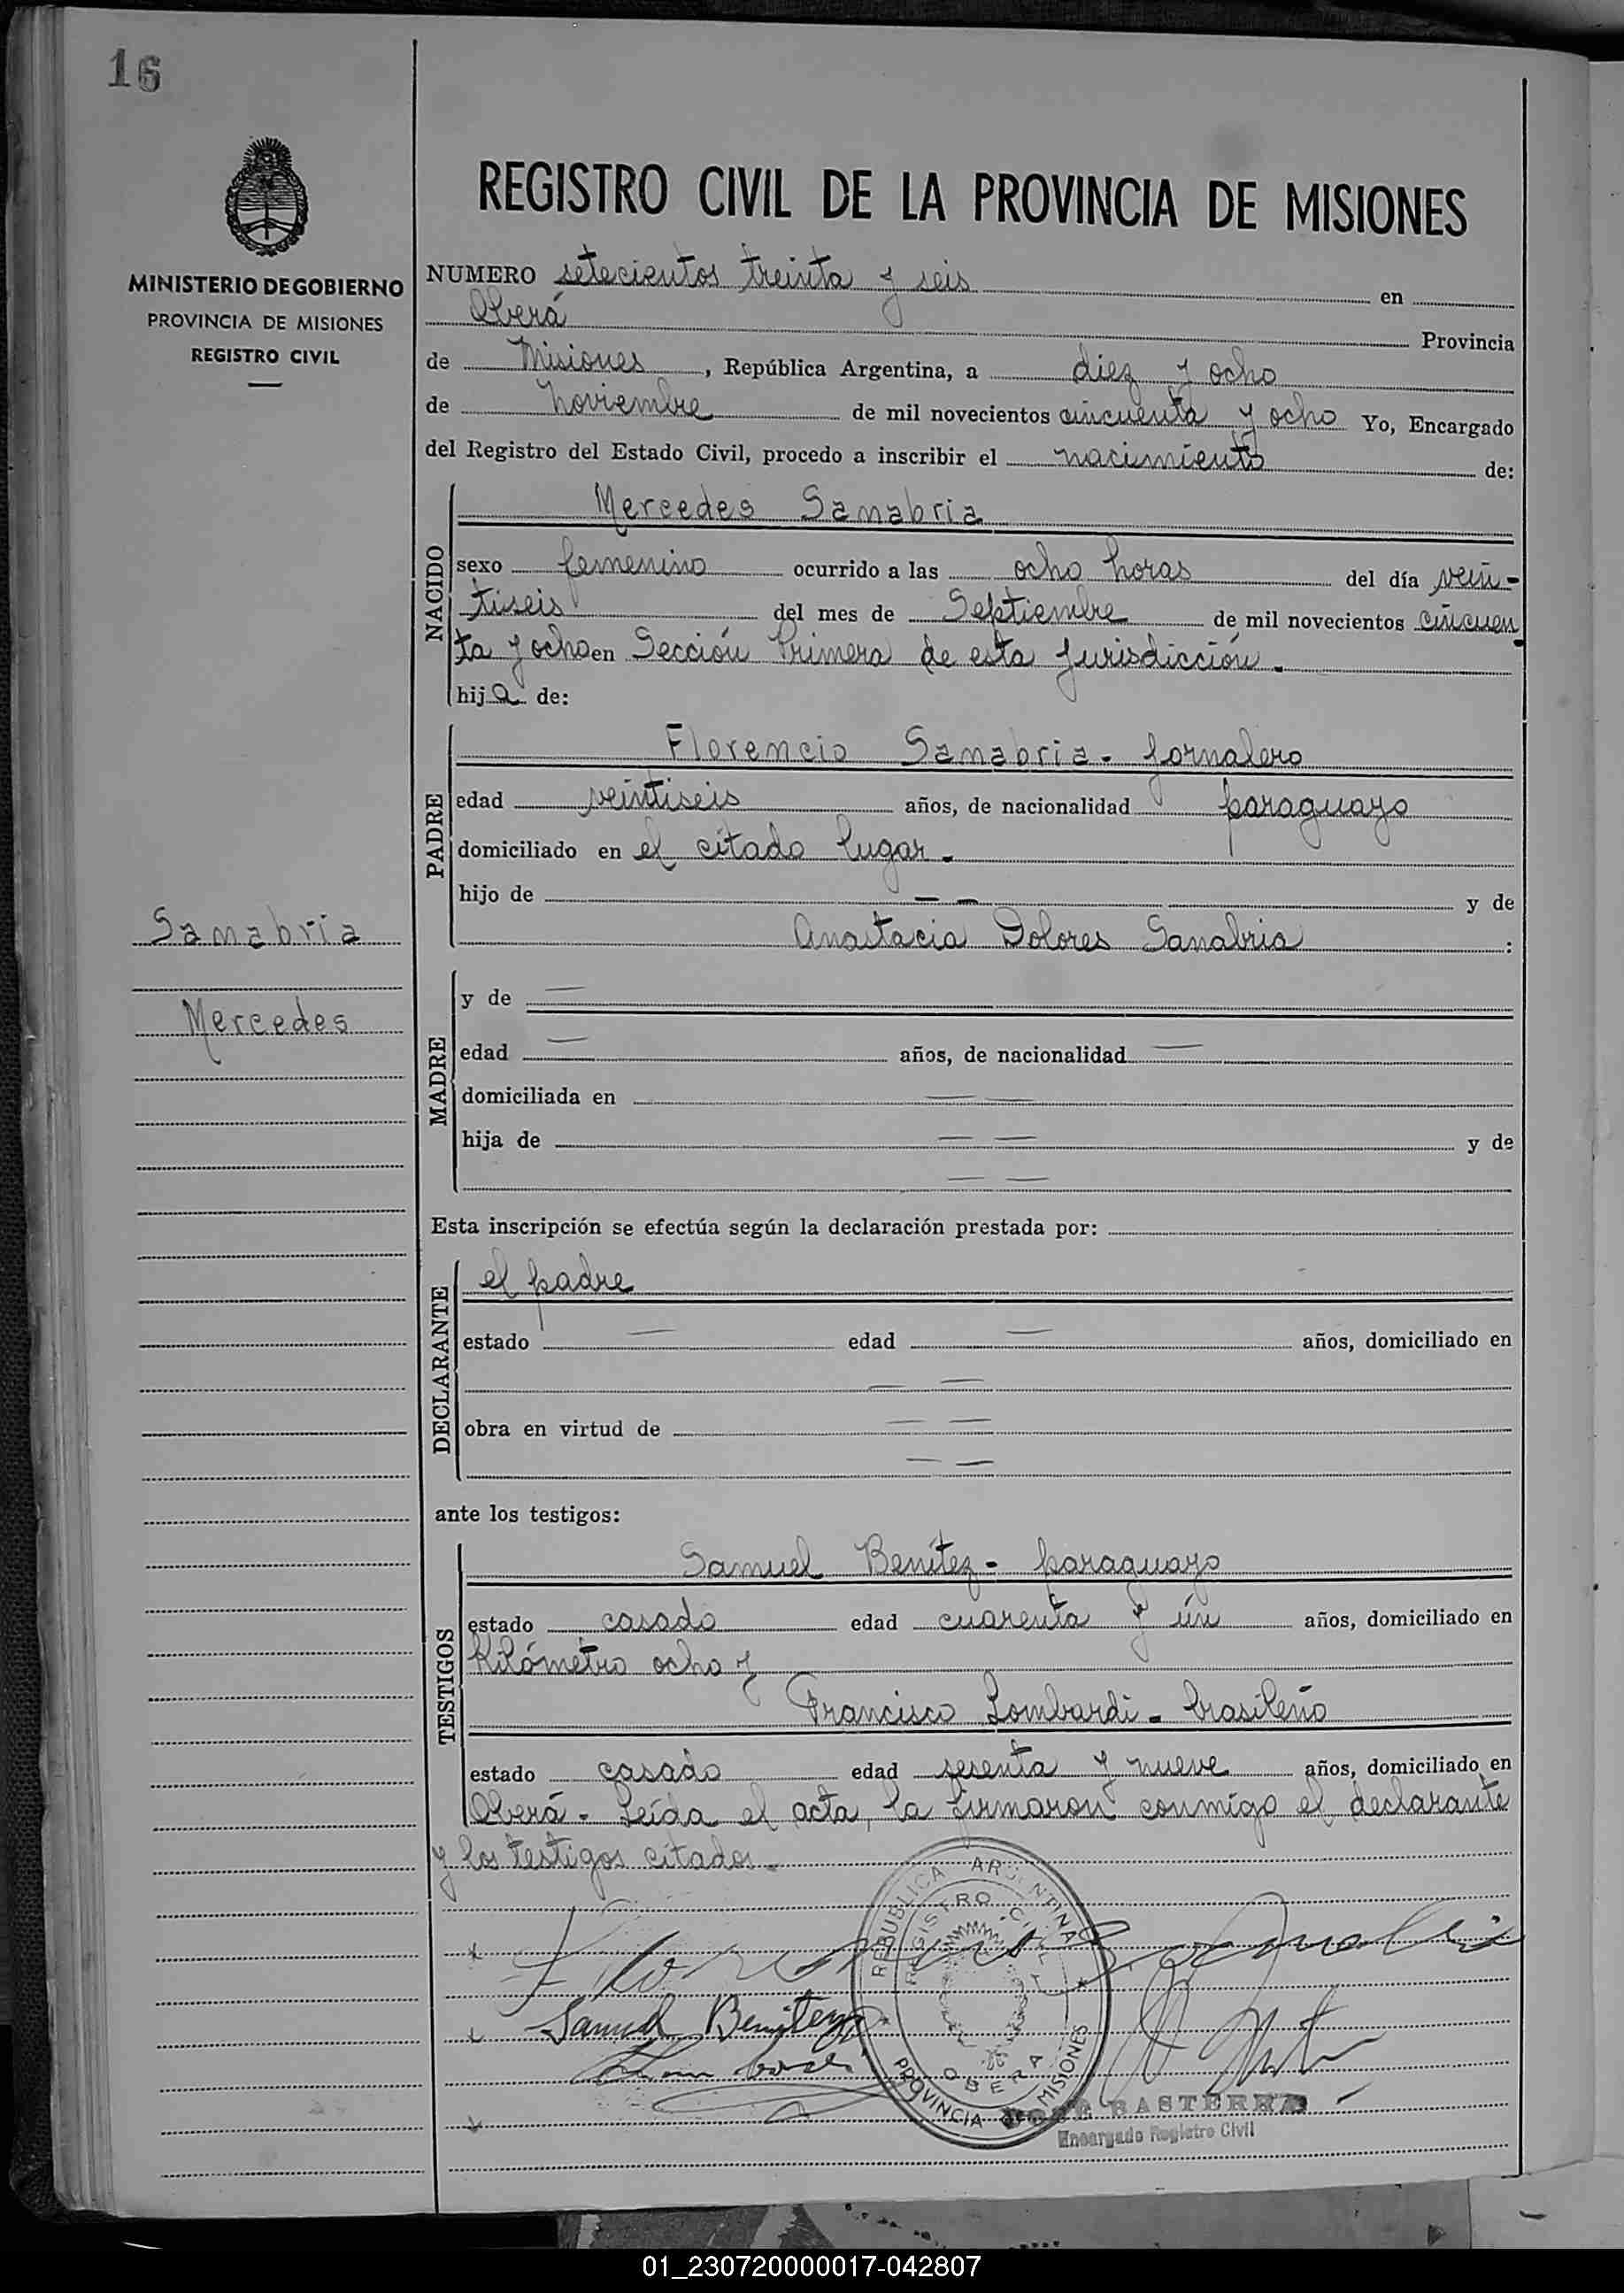 16
MINISTERIO DE GOBIERNO
PROVINCIA DE MISIONES
REGISTRO CIVIL
Sanabria
Mercedes
REGISTRO CIVIL DE LA PROVINCIA DE MISIONES
NUMERO setecientos treinta y seis en
Oberá Provincia
de Misiones, República Argentina, a diez y ocho
de Noviembre de mil novecientos cincuenta y ocho Yo, Encargado
del Registro del Estado Civil, procedo a inscribir el nacimiento de:
NACIDO
Mercedes Sanabria
sexo femenino ocurrido a las ocho horas del día vein-
tiseis del mes de Septiembre de mil novecientos cincuen
ta y ocho en Sección Primera de esta Jurisdicción.
hija de:
PADRE
Florencio Sanabria - Jornalero
edad veintiseis años, de nacionalidad paraguayo
domiciliado en el citado lugar.
hijo de — — y de
Anastacia Dolores Sanabria :
MADRE
y de —
edad — años, de nacionalidad —
domiciliada en — —
hija de — — y de
— —
Esta inscripción se efectúa según la declaración prestada por:
DECLARANTE
el padre
estado — edad — años, domiciliado en
— —
obra en virtud de — —
— —
ante los testigos:
TESTIGOS
Samuel Benítez - paraguayo
estado casado edad cuarenta y ún años, domiciliado en
Kilómetro ocho y
Francisco Lombardi - brasileño
estado casado edad sesenta y nueve años, domiciliado en
Oberá - Leída el acta, la firmaron conmigo el declarante
y los testigos citados.
Florencio Sanabria
Samuel Benitez
REPUBLICA ARGENTINA
REGISTRO CIVIL
OBERA
PROVINCIA DE MISIONES
BASTERRA
Encargado Registro Civil
01_230720000017-042807